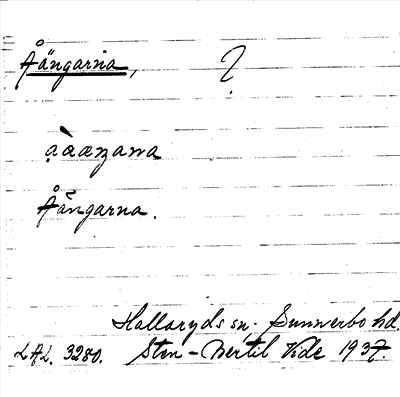 Åängarna, ?
Åängarna.
Hallaryds sn. Sunnerbo hd.
LAL. 3280. Sten-Bertil Vide 1937.